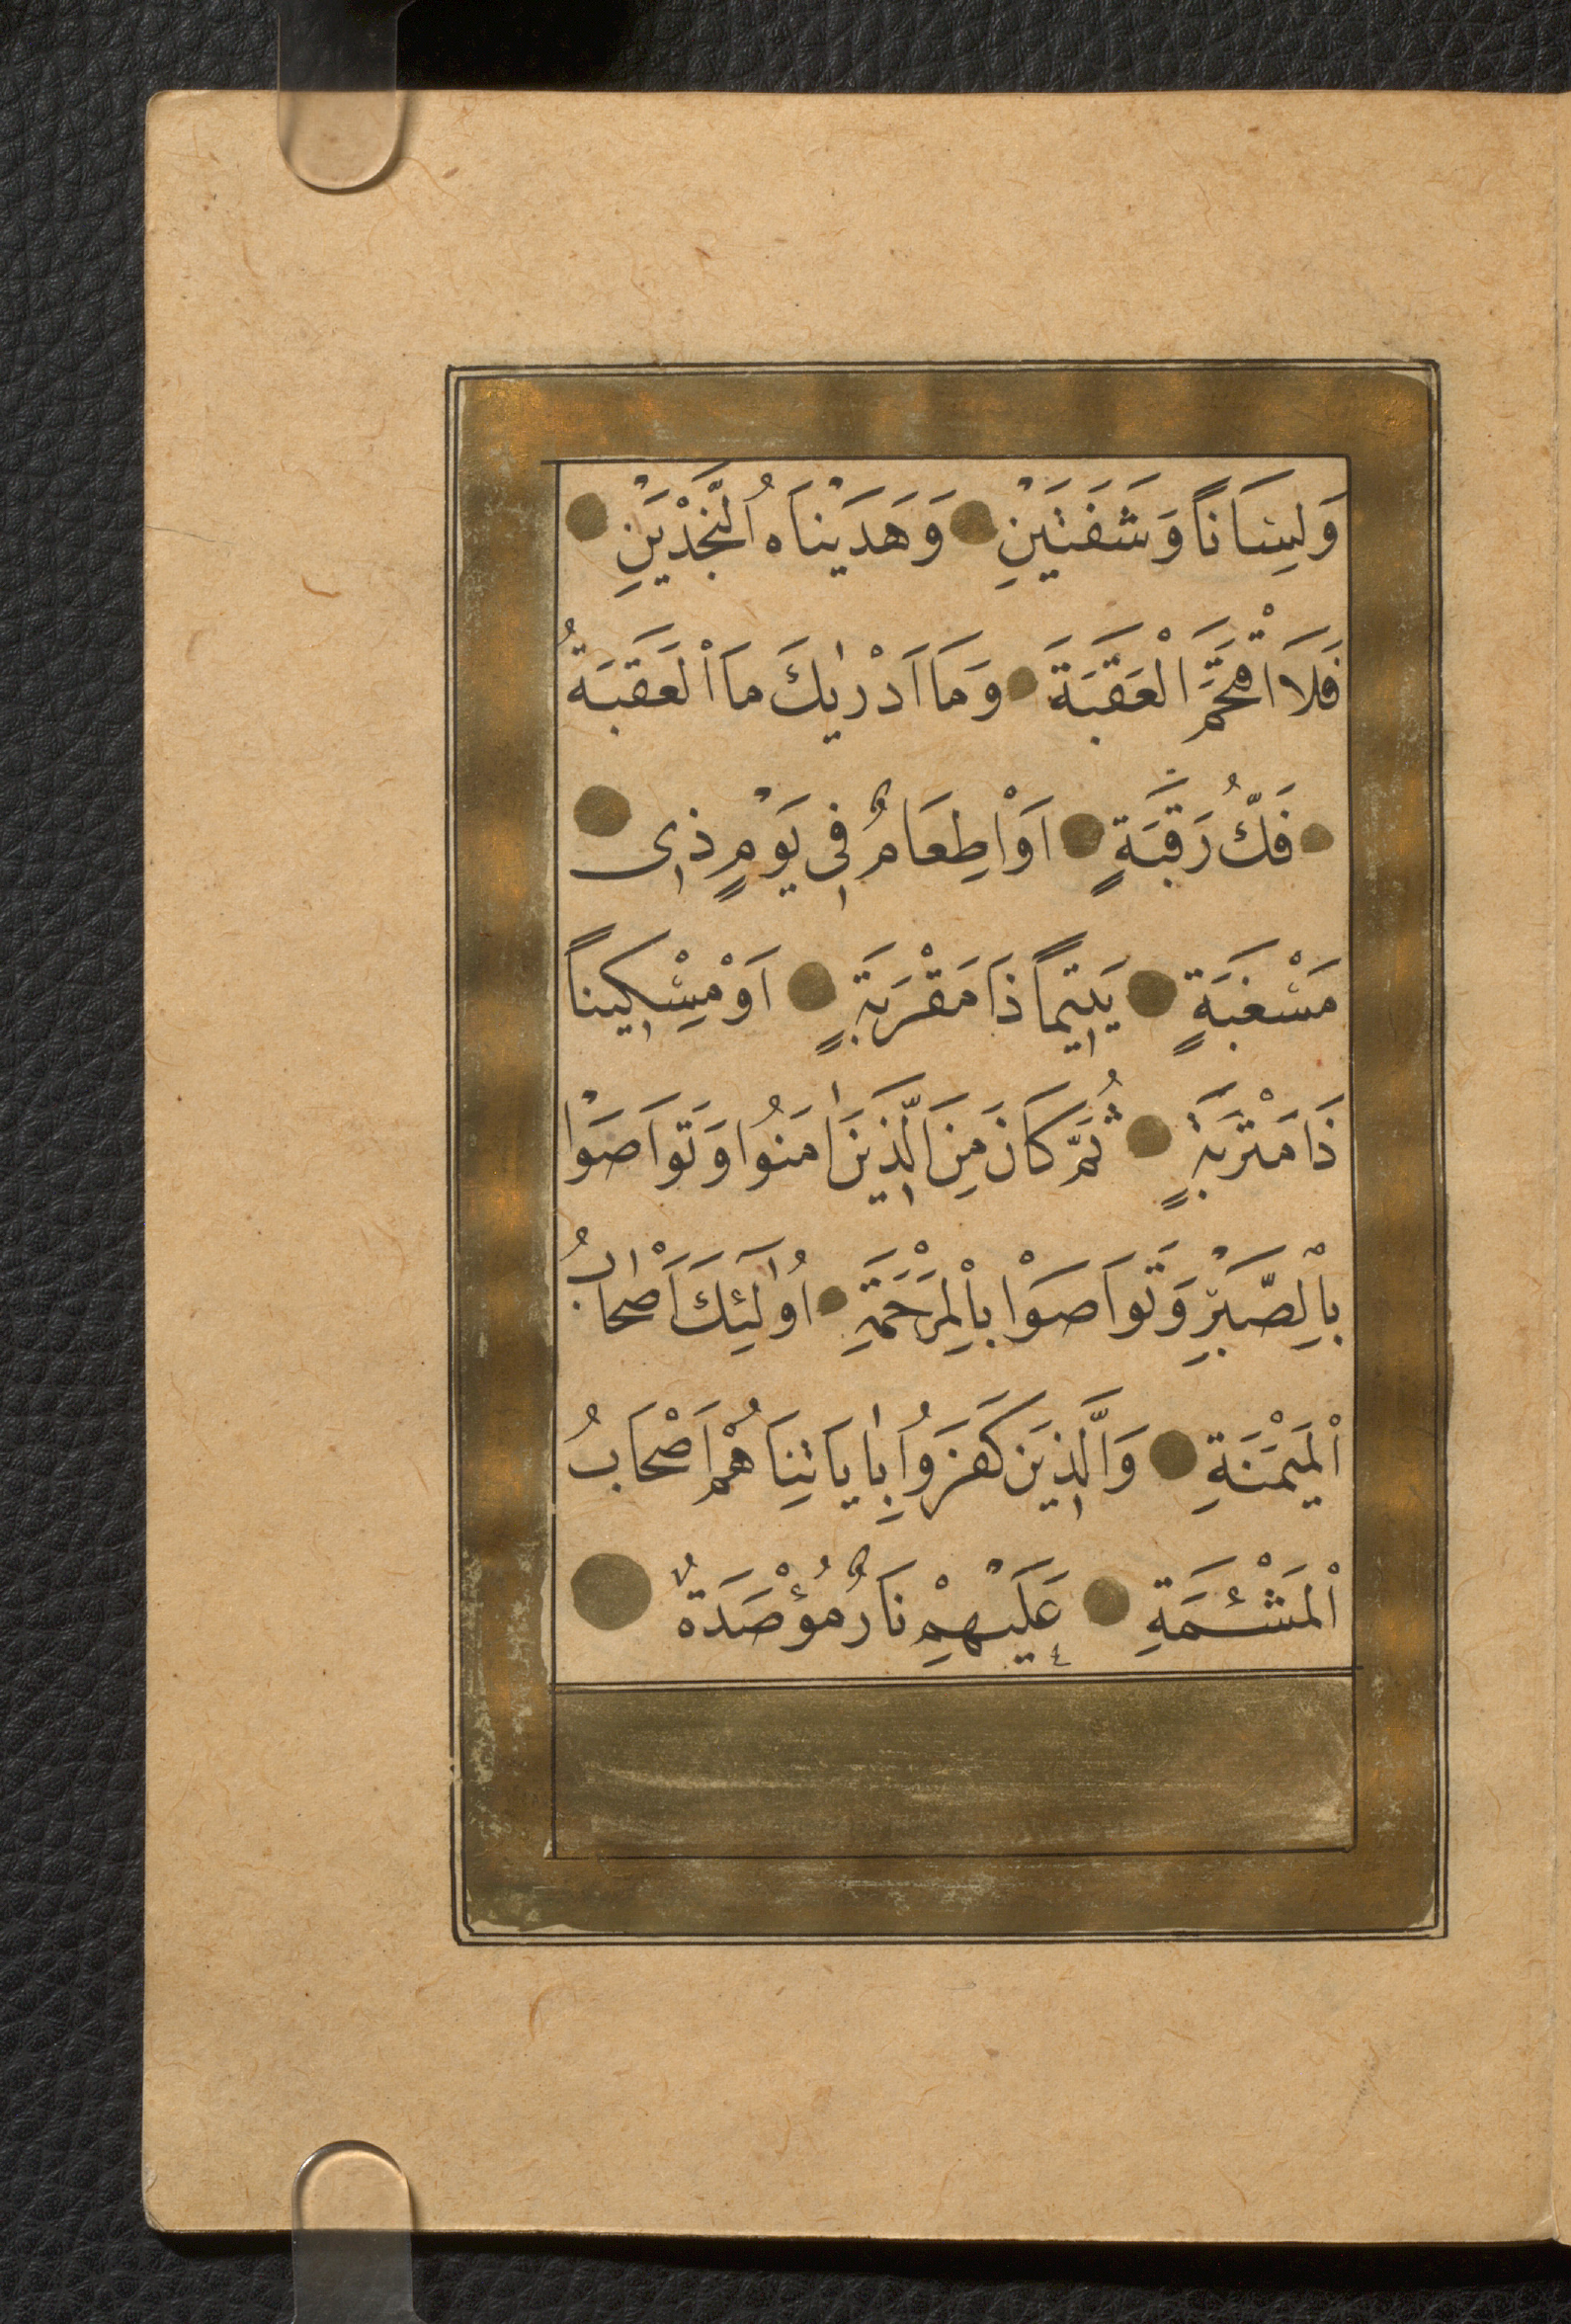 وَلِسَانًا وَشَفَتَيْنِ وَهَدَيْنَاهُ النَّجْدَيْنِ
فَلَا اقْتَحَمَ الْعَقَبَةَ وَمَا اَدْرٰيكَ مَا الْعَقَبَةُ
فَكُّ رَقَبَةٍ اَوْ اِطْعَامٌ فِي يَوْمٍ ذِى
مَسْغَبَةٍ يَتِيمًا ذَا مَقْرَبَةٍ اَوْ مِسْكِينًا
ذَا مَتْرَبَةٍ ثُمَّ كَانَ مِنَ الَّذِينَ اٰمَنُوا وَتَوَاصَوْا
بِالصَّبْرِ وَتَوَاصَوْا بِالْمَرْحَمَةِ اُولٰٓئِكَ اَصْحَابُ
الْمَيْمَنَةِ وَالَّذِينَ كَفَرُوا بِاٰيَاتِنَا هُمْ اَصْحَابُ
الْمَشْئَمَةِ عَلَيْهِمْ نَارٌ مُؤْصَدَةٌ